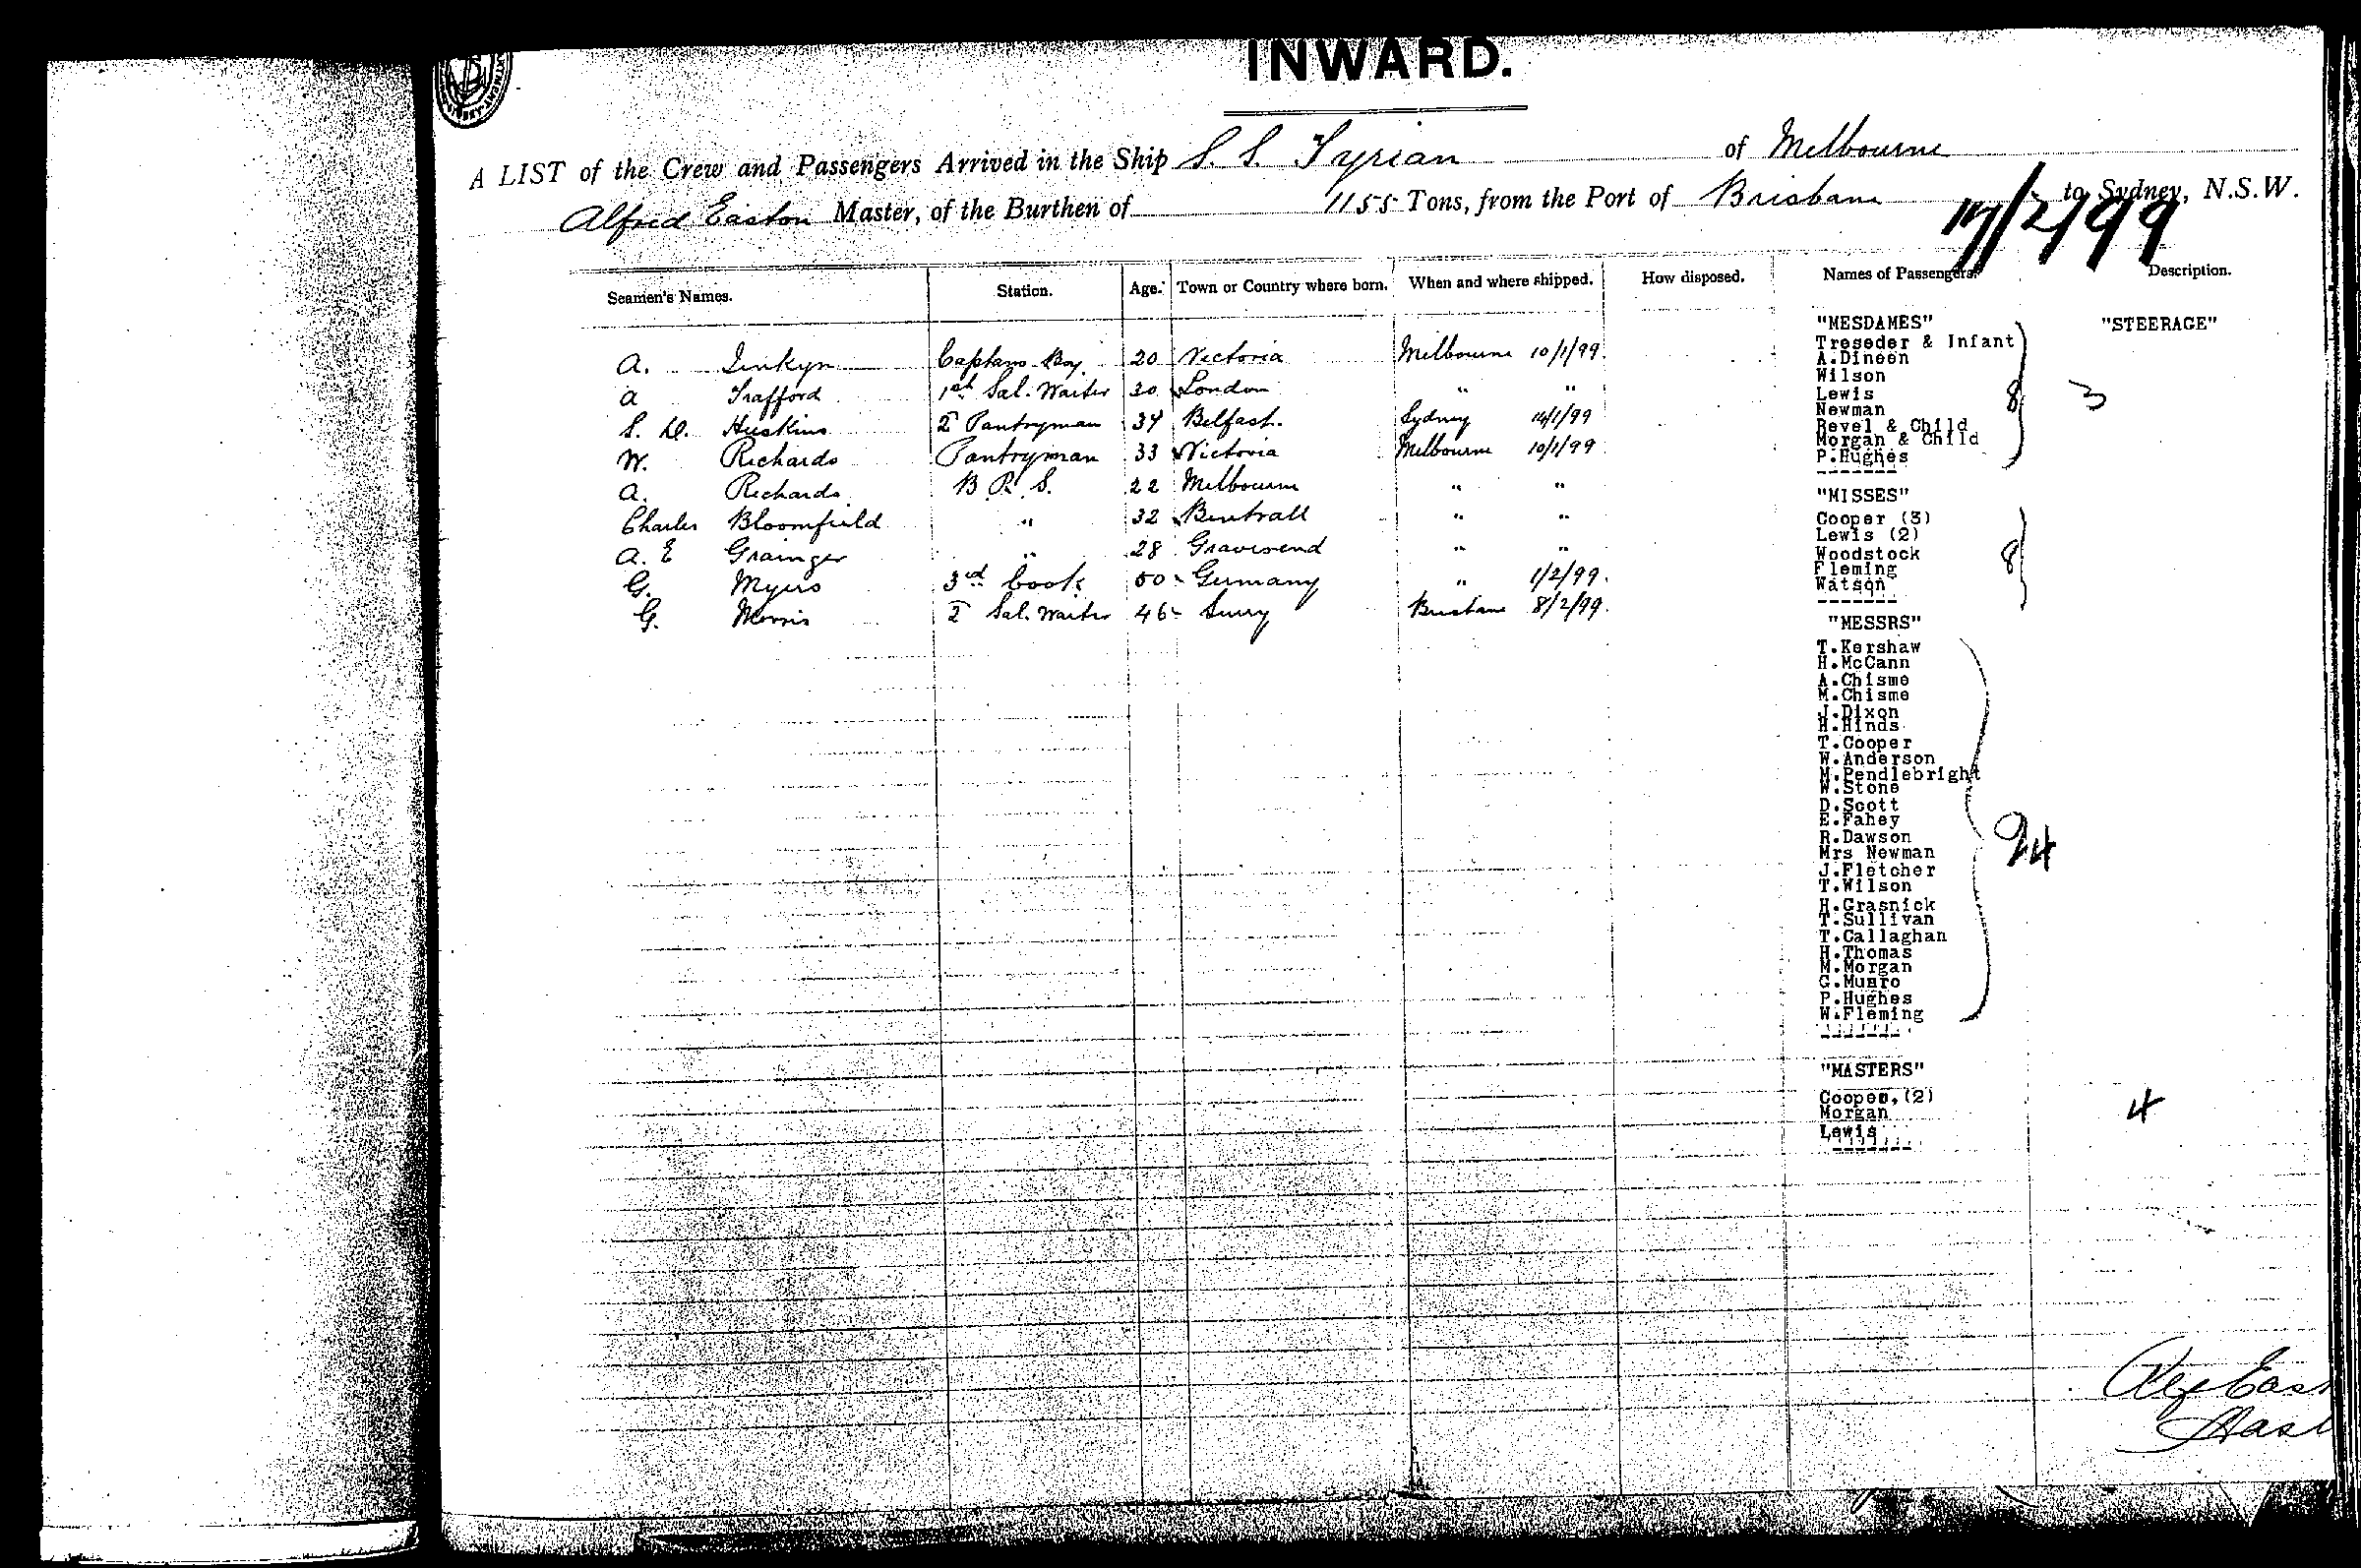 INWARD.
A LIST of the Crew and Passengers Arrived in the Ship S. S. Tyrian of Melbourne
Alfred Easton Master, of the Burthen of 1155 Tons, from the Port of Brisbane to Sydney, N.S.W.
17/2/99
Seamen's Names. Station. Age. Town or Country where born. When and where shipped. How disposed. Names of Passengers. Description.
A. Jenkyn Captains Boy 20 Victoria Melbourne 10/1/99.
A Trafford 1st Sal. Waiter 30 London " "
S. Huskins 2 Pantryman 34 Belfast. Sydney 14/1/99
W. Richards Pantryman 33 Victoria Melbourne 10/1/99
A. Richards B. R. S. 22 Melbourne " "
Charles Bloomfield " 32 " "
A. E Grainger " 28 Gravesend " "
G. Myers 3rd Cook 50 Germany " 1/2/99.
G. Morris 2 Sal. Waiter 46 Surry Brisbane 8/2/99.
"MESDAMES" "STEERAGE"
Treseder & Infant
A.Dineen
Wilson
Lewis 8 3
Newman
Revel & Child
Morgan & Child
P.Hughes
-------
"MISSES"
Cooper (3)
Lewis (2)
Woodstock 8
Fleming
Watson
-------
"MESSRS"
T.Kershaw
H.McCann
A.Chisme
M.Chisme
J.Dixon
H.Hinds
T.Cooper
W.Anderson
M.Pendlebright
W.Stone
D.Scott
E.Fahey
R.Dawson 24
Mrs Newman
J.Fletcher
T.Wilson
H.Grasnick
T.Sullivan
T.Callaghan
H.Thomas
M.Morgan
G.Munro
P.Hughes
W.Fleming
-------
"MASTERS"
Cooper,(2)
Morgan 4
Lewis
-------